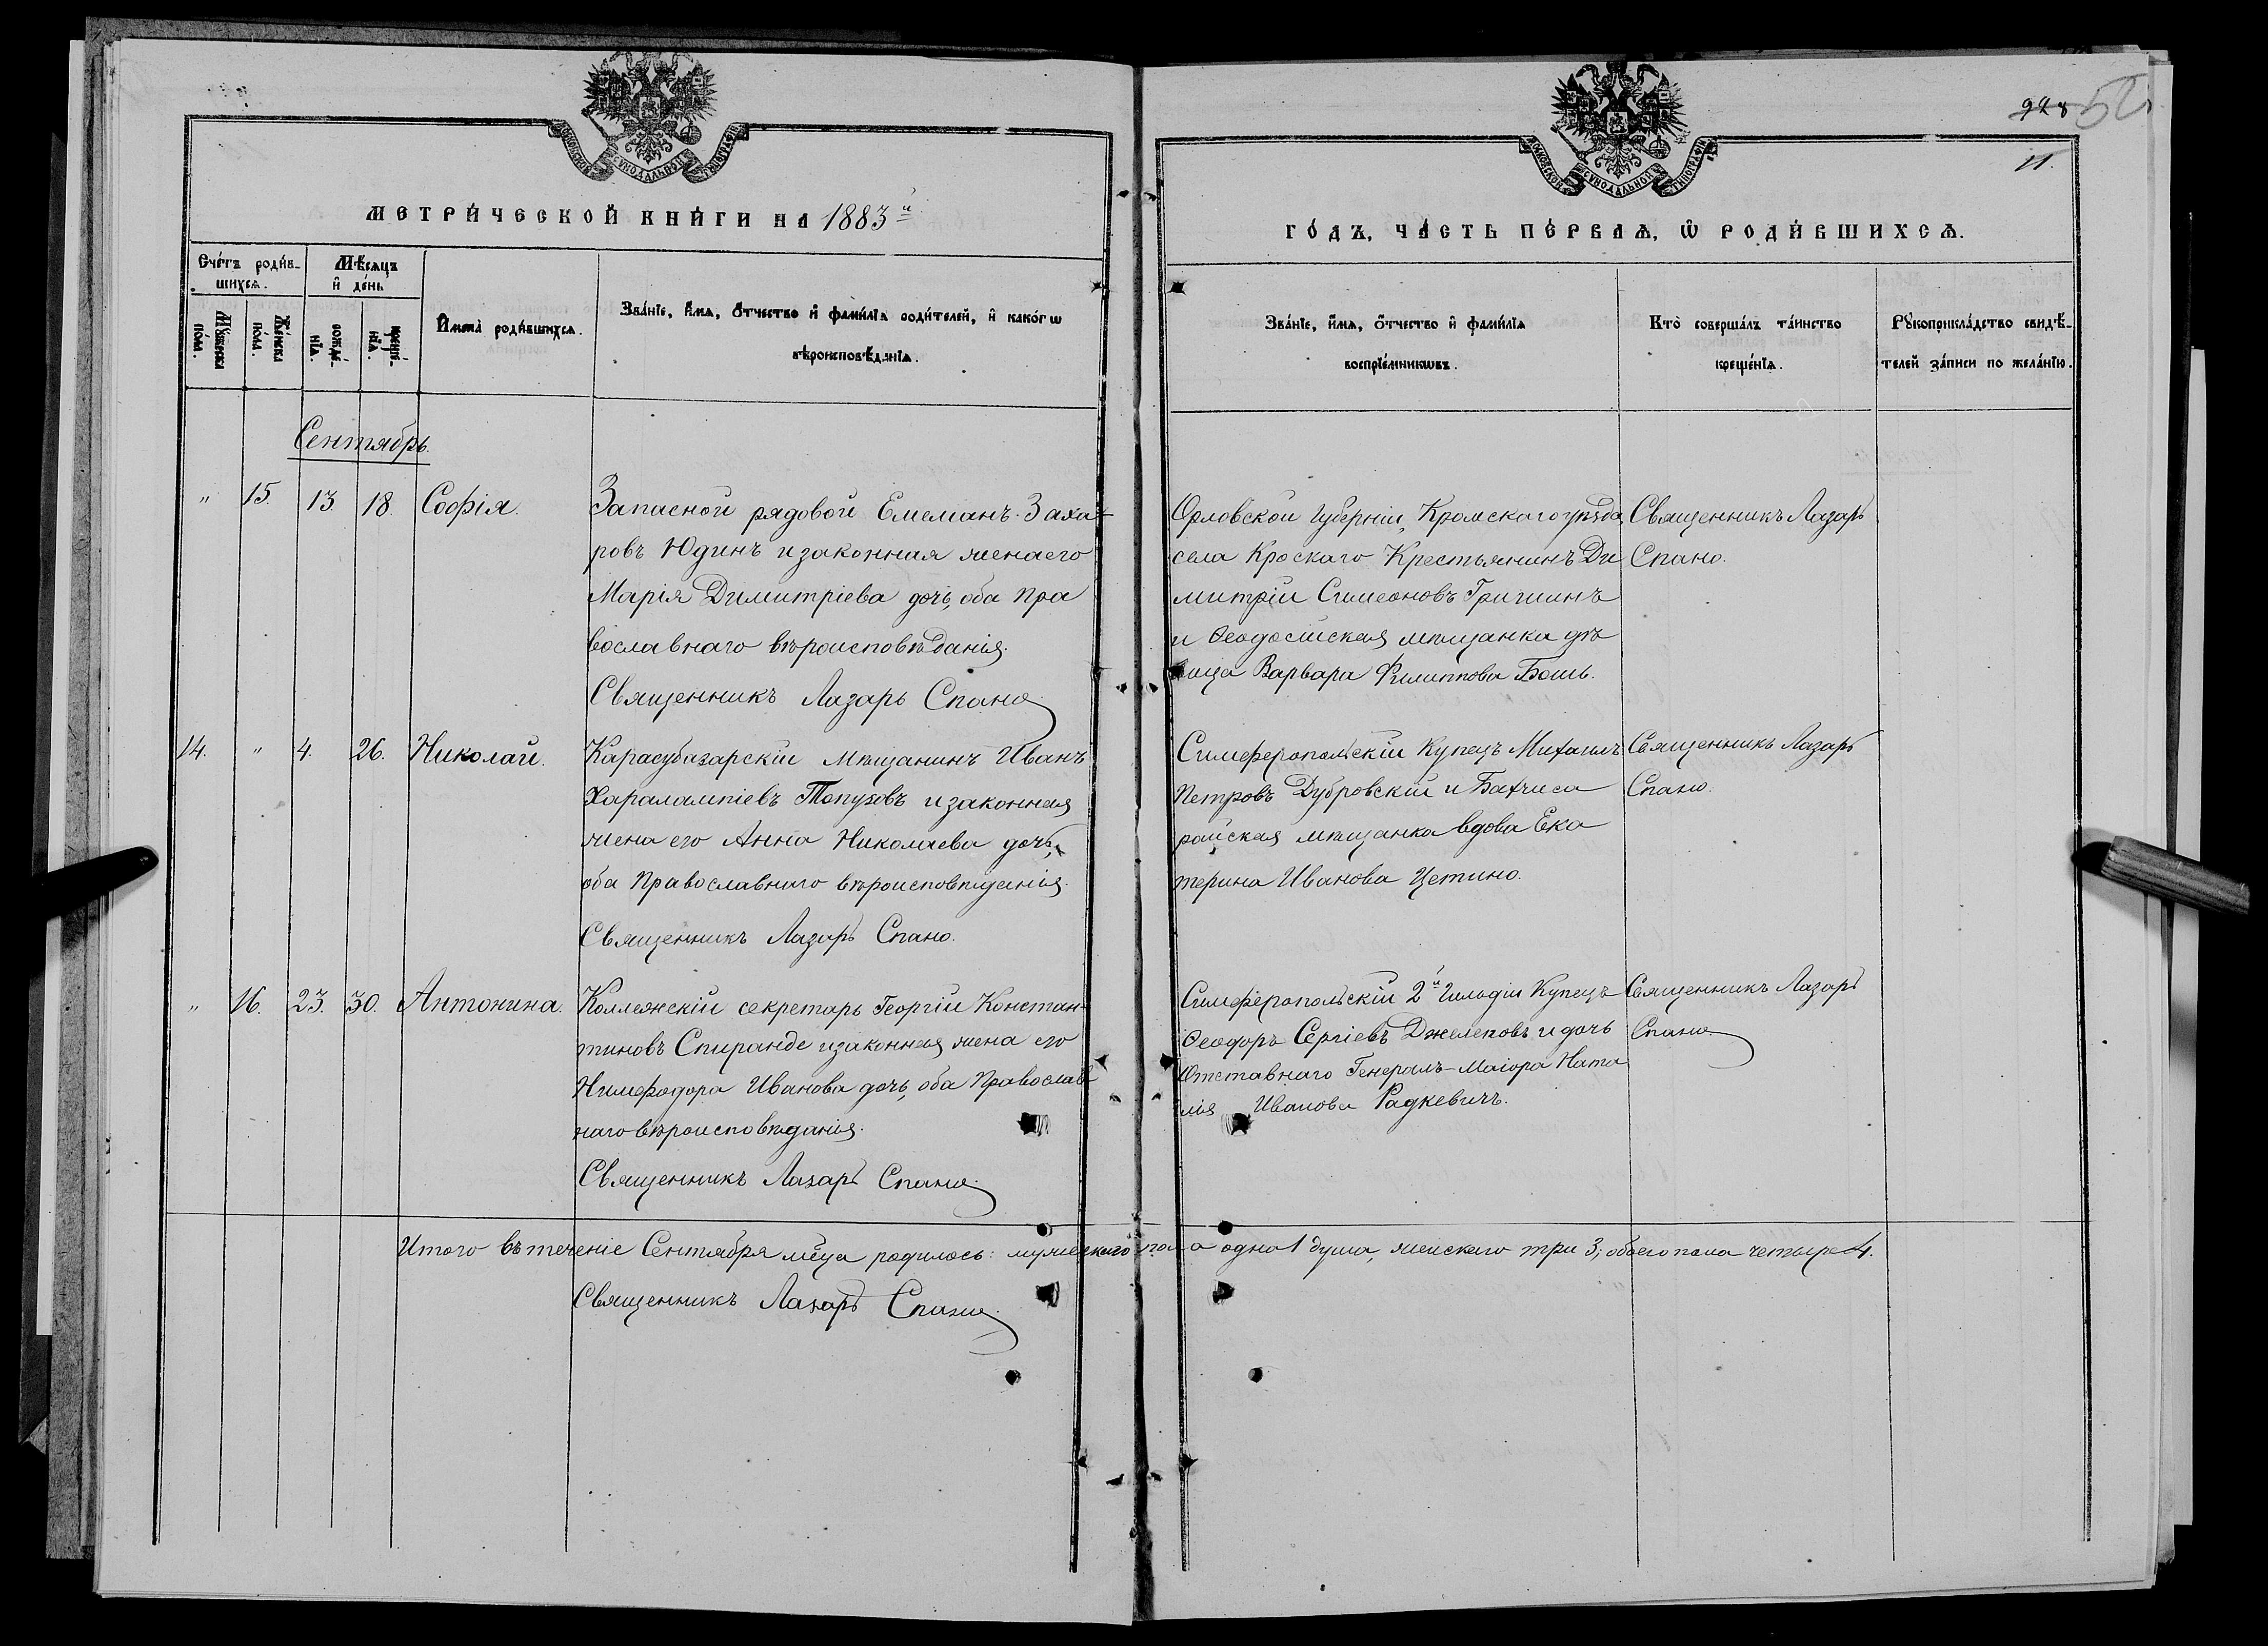 928 52
11.
МОСКОВСКОЙ СѴНОДАЛЬНОЙ ТИПОГРАФІИ
МОСКОВСКОЙ СѴНОДАЛЬНОЙ ТИПОГРАФІИ
МЕТРИ́ЧЕСКОЙ КНИ́ГИ НА 1883й
ГО́ДЪ, ЧА́СТЬ ПЕ́РВАѦ, Ѡ РОДИ́ВШИХСѦ.
Сче́тъ роди́в-
шихсѧ.
Мꙋ́жеска по́ла.
Же́нска по́ла.
Мѣ́сѧцъ
и҆ де́нь
рожде́-нїѧ.
креще́-нїѧ.
И҆мена̀ роди́вшихсѧ.
Зва́нїе, и҆́мѧ, ѻ҆́тчество и҆ фами́лїѧ роди́телей, и҆ како́гѡ
вѣроисповѣ́данїѧ.
Зва́нїе, и҆́мѧ, ѻ҆́тчество и҆ фами́лїѧ
воспрїе́мникѡвъ.
Кто̀ соверша́лъ та́инство
креще́нїѧ.
Рꙋкоприкла́дство свидѣ́-
телей за́писи по жела́нїю.
Сентябрь
" 15. 13. 18. Софія.
Запасной рядовой Емеманъ Заха-
ровъ Юдинъ и законная жена его
Марія Димитріева дочь, оба Пра
вославнаго вѣроисповѣданія.
Священникъ Лазарь Спано
Орловской Губерніи, Кромскаго уѣзда
села Кроскаго Крестьянинъ Ди
митрій Симеоновъ Гришинъ
и Ѳеодосійская мѣщанка дѣ
вица Варвара Филиппова Бошь.
Священникъ Лазарь
Спано.
14. " 4. 26. Николай.
Карасубазарскій мѣщанинъ Иванъ
Харалампіевъ Топузовъ и законная
жена его Анна Николаева дочь,
оба Православнаго вѣроисповѣданія.
Священникъ Лазарь Спано.
Симферопольскій Купецъ Михаилъ
Петровъ Дубровскій и Бахчиса
райская мѣщанка вдова Ека
терина Иванова Цетино.
Священникъ Лазарь
Спано.
" 16. 23. 30. Антонина.
Коллежскій секретарь Георгій Констан-
тиновъ Спиранде и законная жена его
Нимфодора Иванова дочь, оба Православ
наго вѣроисповѣданія.
Священникъ Лазарь Спано
Симферопольскій 2й Гильдіи Купецъ
Ѳеодоръ Сергіевъ Джелеповъ и дочь
Отставнаго Генералъ-Маіора Ната
лія Иванова Радкевичъ.
Священникъ Лазарь
Спано
Итого въ теченіе Сентября мѣсца родилось: мужескаго пола одна 1 душа, женскаго три 3, обоего пола четыре 4.
Священникъ Лазарь Спано